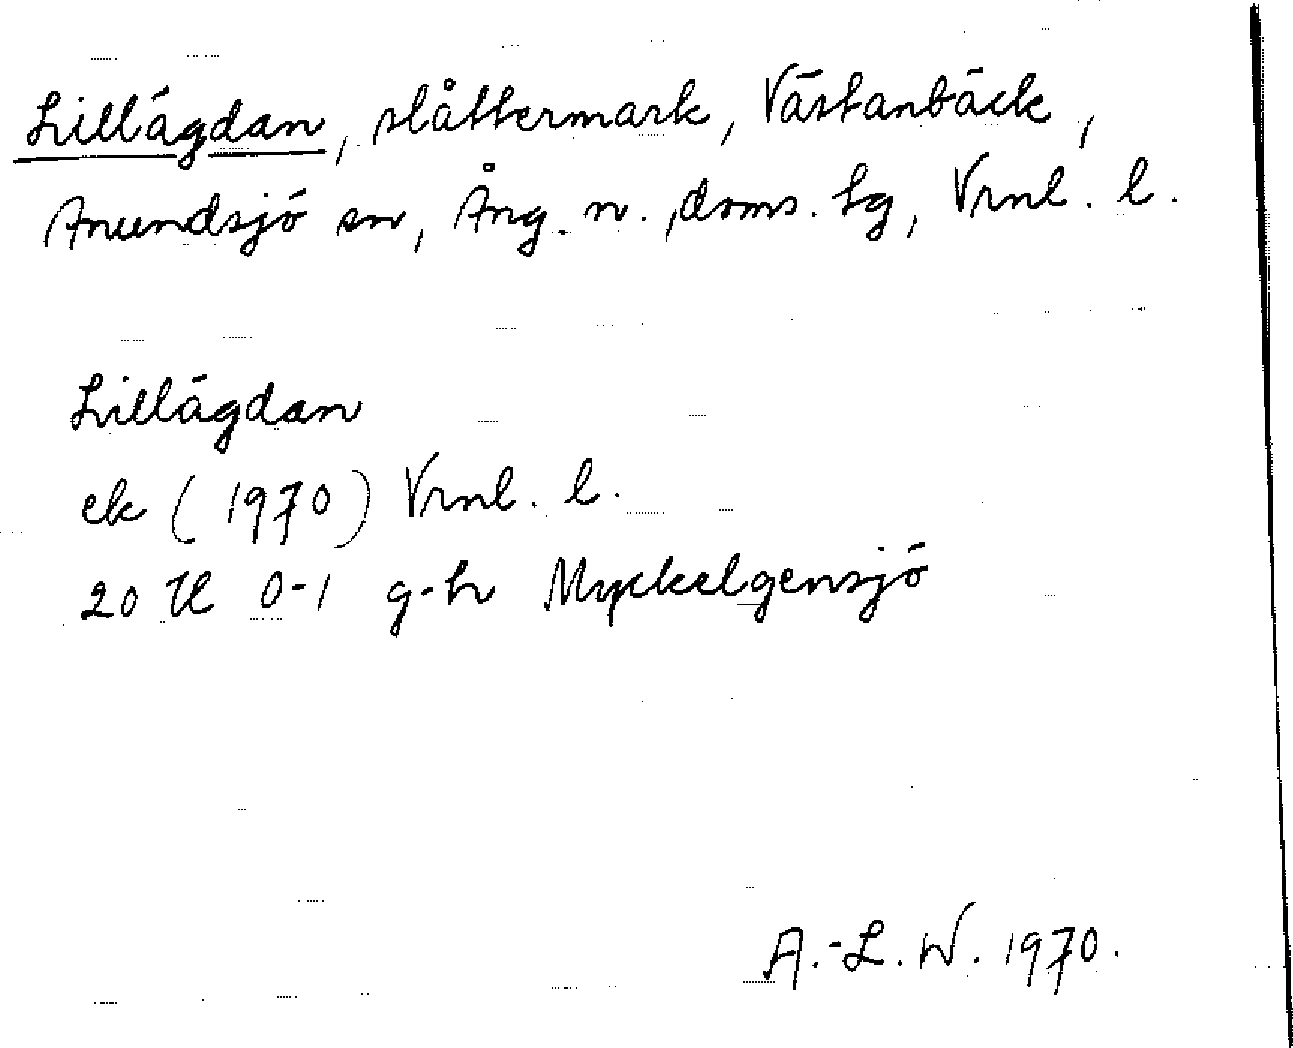 Lillägdan, slåttermark, Västanbäck,
Anundsjö sn, Ång. n. doms. tg, Vrnl. l.
Lillägdan
ek (1970) Vrnl. l.
20 H 0-1 g-h Myckelgensjö
A.-L. W. 1970.